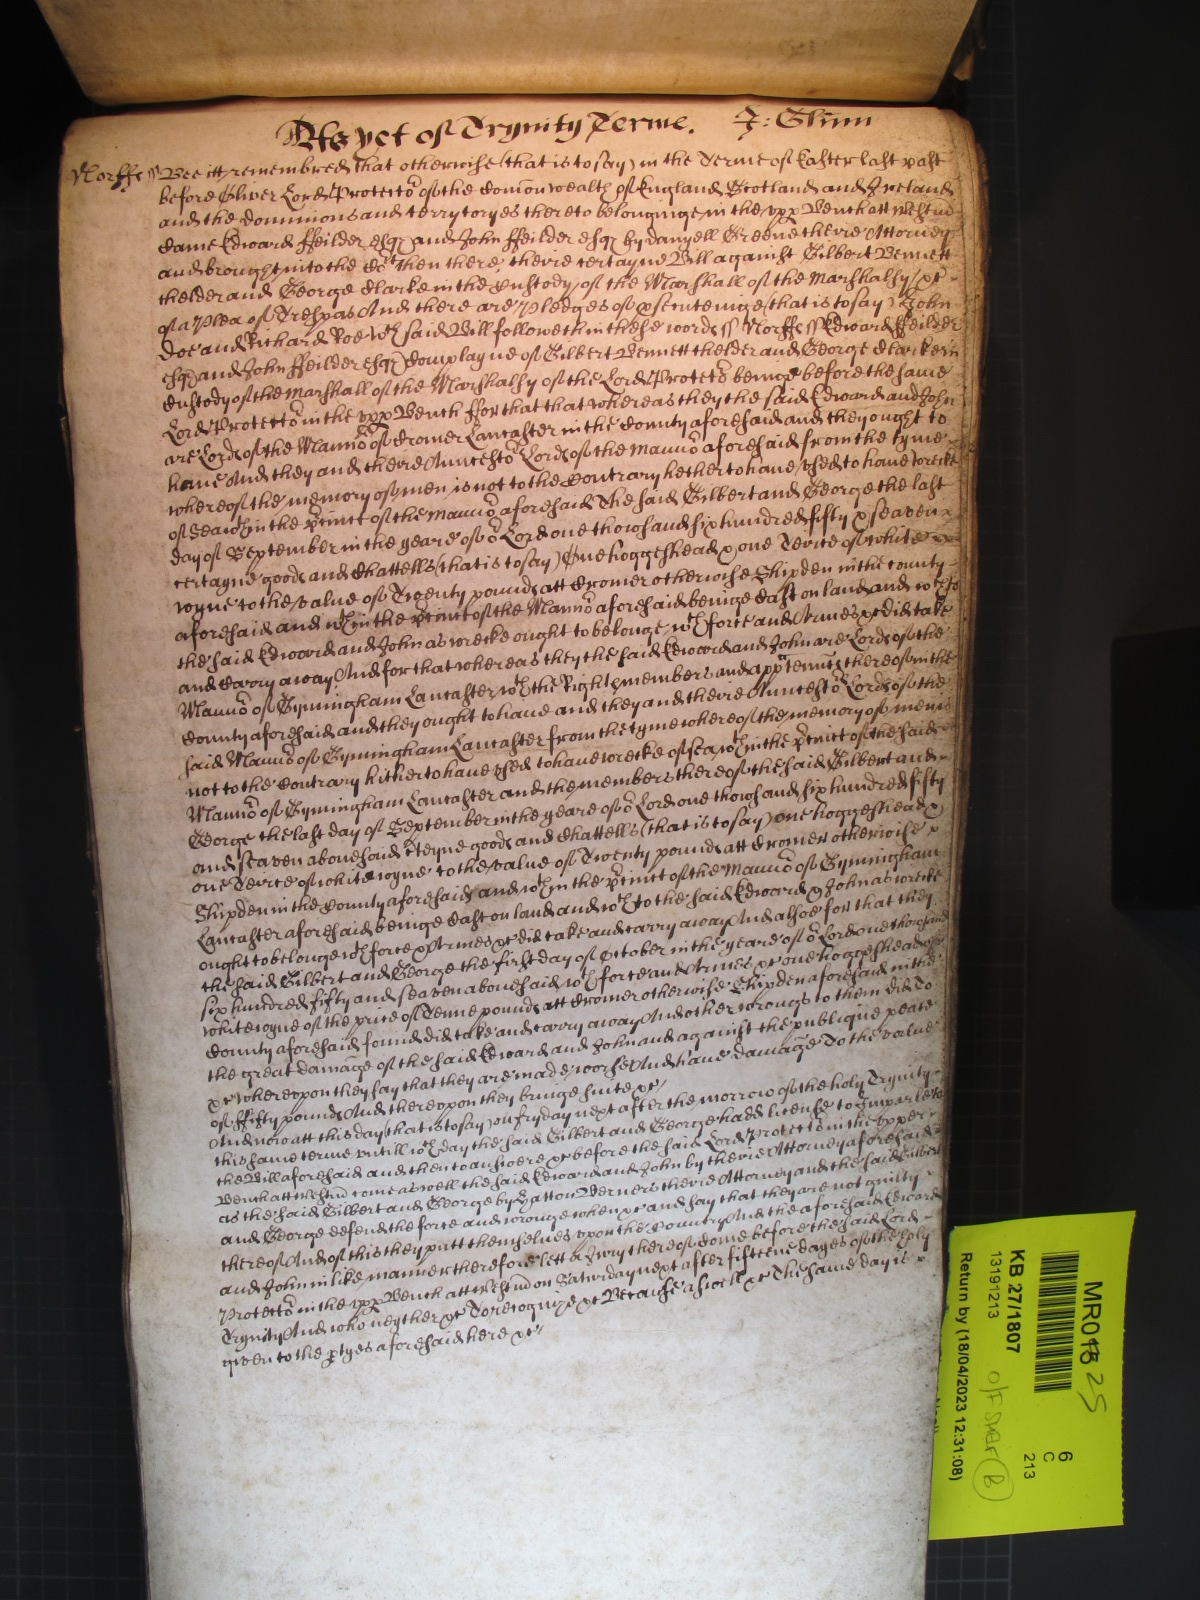 As yet of Trynity Terme.
Norff ss Bee itt remembred that otherwise (that is to say) in the Terme of Easter last past
before Oliver Lord Protecto' of the Com̄onwealth of England Scotland and Ireland
and the dominions and terrytoryes thereto belonginge in the upp Bench att Westm̄
Came Edward ffeilder esq' and John ffeilder esq' by Danyell Greene theire Attorney
and brought into the Co't then there, theire certayne Bill against Gilbert Bennett
thelder and George Clarke in the Custody of the Marshall of the Marshalsy &c
of a Plea of Trespas And there are Pledges of p'secuteinge (that is to say) John
Doe and Richard Roe w'ch said Bill followeth in these words ss Norff ss Edward ffeilder
esq' and John ffeilder esq' Complayne of Gilbert Bennett thelder and George Clarke in
Custody of the Marshall of the Marshalsy of the Lord Protecto' beinge before the same
Lord Protecto' in the upp Bench ffor that that whereas they the said Edward and John
are Lords of the Manno' of Cromer Lancaster in the County aforesaid and they ought to
have And they and theire Auncesto' Lords of the manno' aforesaid from the tyme
whereof the memory of men is not to the Contrary hetherto have used to have wrecke
of Sea w'thin the p'cinct of the manno' aforesaid The said Gilbert and George the last
day of September in the yeare of o' Lord one thowsand six hundred fifty & seaven
certayne goods and Chattells (that is to say) One hoggeshead & one Teirce of white
wyne to the value of Twenty pounds att Cromer otherwise Shipden in the county
aforesaid and w'thin the p'cinct of the Manno' aforesaid beinge Cast on land and w'ch to
the said Edward and John as wrecke ought to belonge, w'th force and Armes &c did take
and Carry away And for that whereas they the said Edward and John are Lords of the
Manno' of Gymingham Lancaster w'th the Rights members and app'tennc's thereof in the
County aforesaid and they ought to have and they and theire Auncesto' Lords of the
said Manno' of Gymingham Lancaster from the tyme whereof the memory of men is
not to the Contrary hitherto have used to have wrecke of sea w'thin the p'cinct of the said
Manno' of Gymingham Lancaster and the members thereof the said Gilbert and
George the last day of September in the yeare of o' Lord one thowsand six hundred fifty
and seaven abovesaid c'teyne goods and Chattells (that is to say) one hoggeshead &
one Teirce of white wyne to the value of Twenty pounds att Cromer otherwise
Shipden in the County aforesaid and w'thin the p'cinct of the Manno' of Gymingham
Lancaster aforesaid beinge Cast on land and w'ch to the said Edward & John as wrecke
ought to belonge w'th force & Armes &c did take and carry away And alsoe for that they
the said Gilbert and George the first day of October in the yeare of o' Lord one thowsand
six hundred fifty and seaven abovesaid w'th force and Armes &c one hoggeshead of
white wyne of the price of Tenne pounds att Cromer otherwise Shipden aforesaid in the
County aforesaid found did take and carry away And other wrongs to them did To
the great damage of the said Edward and John and against the publique peace
&c whereupon they say that they are made worse And have damage To the value
of ffifty pounds And thereupon they bringe suite &c
And now att this day (that is to say) on fryday next after the morrow of the holy Trynity
this same terme untill w'ch day the said Gilbert and George hadd licence to Imparle to
the Bill aforesaid and then to answere &c before the said Lord Protecto' in the Upper
Bench att Westm̄ come aswell the said Edward and John by theire Attorney aforesaid
as the said Gilbert and George by Hatton Berners theire Attorney and the said Gilbert
and George defend the force and wronge when &c and say that they are not guilty
thereof And of this they putt themselves upon the Country And the aforesaid Edward
and John in like manner therefore lett a Jury thereof Come before the said Lord
Protecto' in the upp Bench att Westm̄ on Saturday next after fifteene dayes of the holy
Trynity And who neyther &c To recognize &c Because aswell &c The same day is
given to the p'tyes aforesaid here &c
MR01
25
6
C
213
KB 27/1807
13191213
B
Return by (18/04/2023 12:31:08)